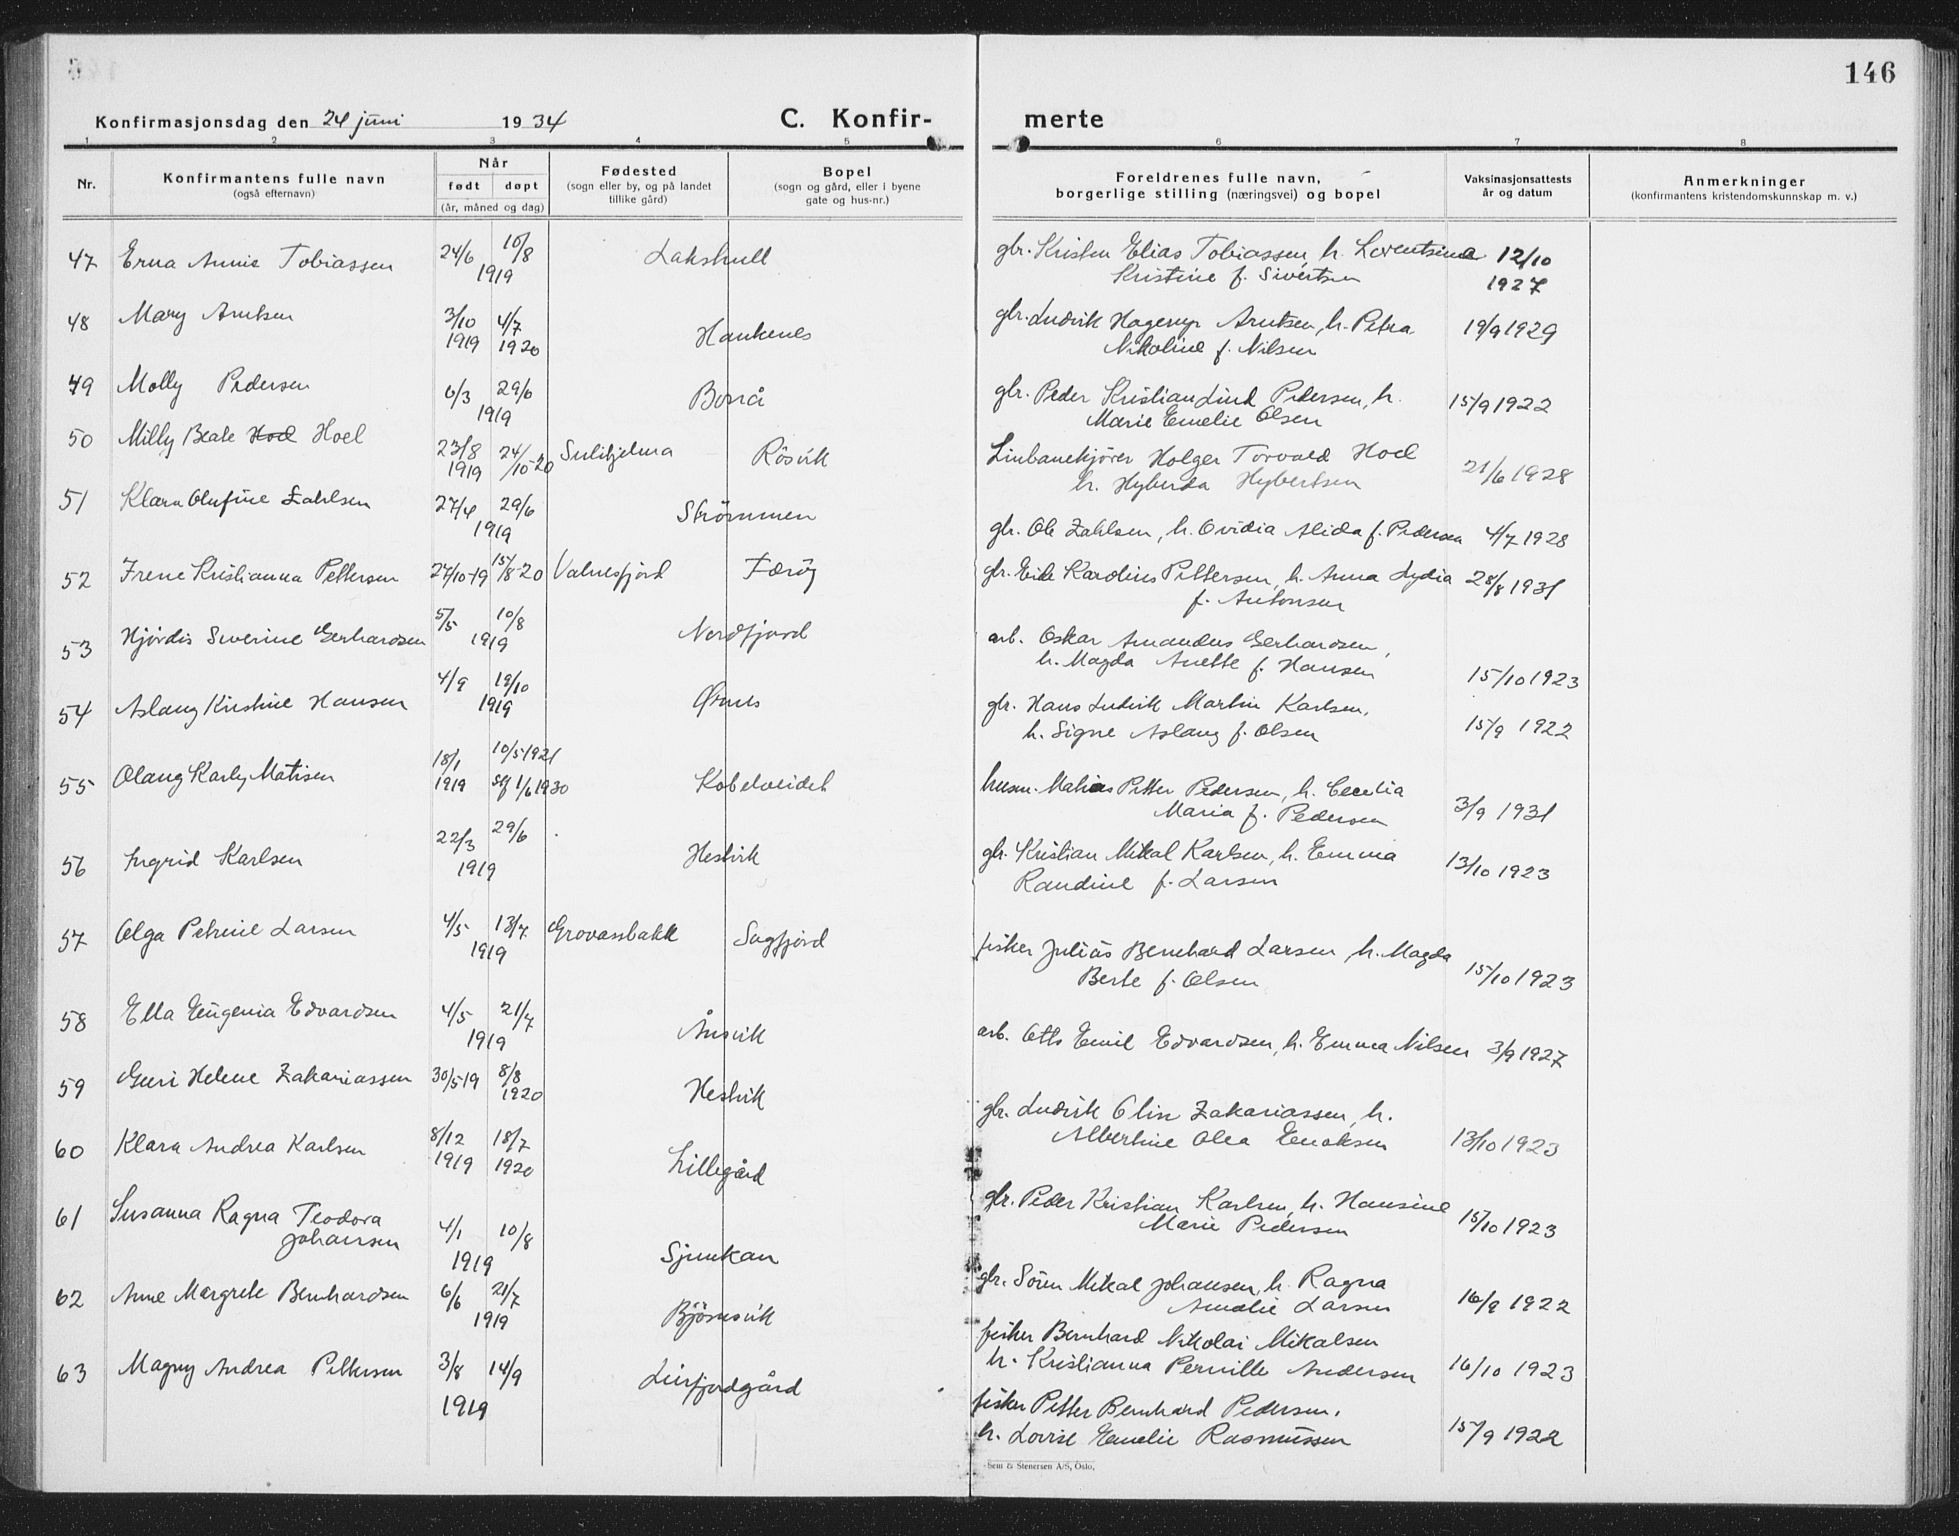 146
Konfirmasjonsdag den 24 juni 1934
C. Konfir- merte
1 2 3 4 5 6 7 8
Nr.
Konfirmantens fulle navn
(også efternavn)
Når
født døpt
(år, måned og dag)
Fødested
(sogn eller by, og på landet
tillike gård)
Bopel
(sogn og gård, eller i byene
gate og hus-nr.)
Foreldrenes fulle navn,
borgerlige stilling (næringsvei) og bopel
Vaksinasjonsattests
år og datum
Anmerkninger
(konfirmantens kristendomskunnskap m. v.)
47 Erna Annie Tobiassen 24/6 10/8 1919 Lakshull
gbr. Kristen Elias Tobiassen, h. Lorentsine 12/10
Kristine f. Sivertsen 1927
48 Mary Arntsen 3/10 1919 4/7 1920 Haukenes
gbr. Ludvik Hagerup Arntsen, h. Petra 19/9 1929
Nikoline f. Nilsen
49 Molly Pedersen 6/3 29/6 1919 Bonnå
gbr. Peder Kristian Lind Pedersen, h. 15/9 1922
Marie Emelie Olsen
50 Milly Beate Hoel Hoel 23/8 1919 24/10-20 Sulitjelma Røsvik
Linbanekjører Holger Torvald Hoel 21/6 1928
h. Hyberda Hybertsen
51 Klara Olufine Zahlsen 27/4 29/6 1919 Strømmen
gbr. Ole Zahlsen, h. Ovidia Alida f. Pedersen 4/7 1928
52 Irene Kristianna Pettersen 24/10-19 15/8-20 Valnesfjord Færøy
gbr. Eide Karolius Pettersen, h. Anna Lydia 28/8 1931
f. Antonsen
53 Hjørdis Severine Gerhardsen 5/5 10/8 1919 Nordfjord
arb. Oskar Amandus Gerhardsen,
h. Magda Anette f. Hansen 15/10 1923
54 Aslaug Kristine Hansen 4/9 19/10 1919 Ørnes
gbr. Hans Ludvik Martin Karlsen,
h. Signe Aslaug f. Olsen 15/9 1922
55 Olaug Karly Matisen 18/1 1919 10/5 1921 stf 1/6 1930 Kobelveidet
husm. Matias Petter Pedersen, h. Cecelia
Maria f. Pedersen 3/9 1931
56 Ingrid Karlsen 22/3 29/6 1919 Hestvik
gbr. Kristian Mikal Karlsen, h. Emma 13/10 1923
Randine f. Larsen
57 Olga Petrine Larsen 4/5 13/7 1919 Grovassbakk Sagfjord
fisker Julius Bernhard Larsen, h. Magda
Berte f. Olsen 15/10 1923
58 Ella Eugenia Edvardsen 4/5 21/7 1919 Ånsvik
arb. Otto Emil Edvardsen, h. Emma Nilsen 3/9 1927
59 Guri Helene Zakariassen 30/5-19 8/8 1920 Hestvik
gbr. Ludvik Olin Zakariassen, h.
Albertine Olea Enoksen 13/10 1923
60 Klara Andrea Karlsen 8/12 1919 18/7 1920 Lillegård
gbr. Peder Kristian Karlsen, h. Hansine
Marie Pedersen 15/10 1923
61 Susanna Ragna Teodora
Johansen 4/1 10/8 1919 Sjunkan
gbr. Søren Mikal Johansen, h. Ragna
Amalie Larsen 16/9 1922
62 Anne Margrete Bernhardsen 6/6 21/7 1919 Bjørnsvik
fisker Bernhard Nikolai Mikalsen
h. Kristianna Pernille Andersen 16/10 1923
63 Magny Andrea Pettersen 3/8 14/9 1919 Leirfjordgård
fisker Petter Bernhard Pedersen,
h. Lovise Emelie Rasmussen 15/9 1922
Sem & Stenersen A/S, Oslo.